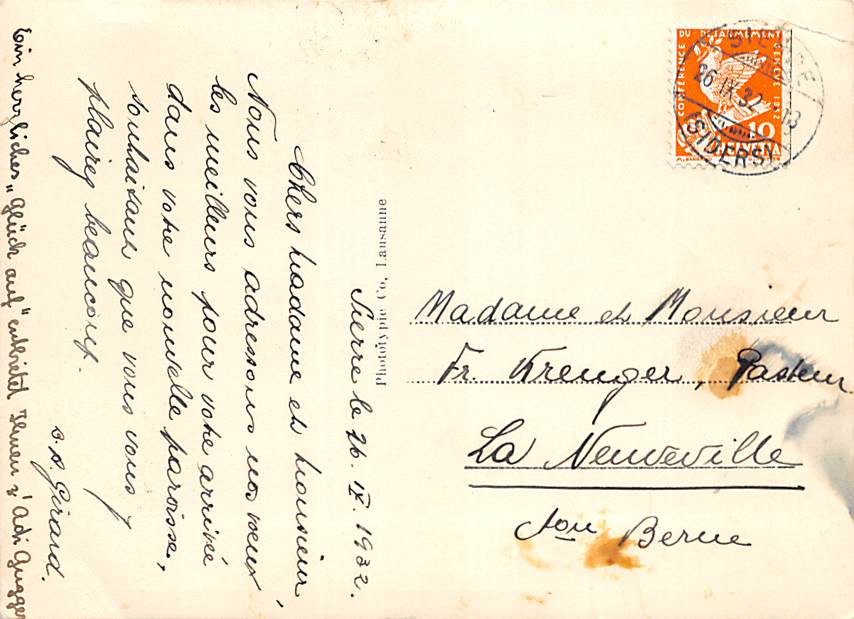 Sierre le 26. IX. 1932.
Chers Madame et Monsieur,
Nous vous adressons nos vœux
les meilleurs pour votre arrivée
dans votre nouvelle paroisse,
souhaitant que vous vous y
plairez beaucoup.
s. s. Gérard.
Ein herzliches „Glück auf“ entbietet Ihnen s' Adi Gugger
Phototypie Co, Lausanne
CONFÉRENCE DU DÉSARMEMENT GENÈVE 1932
10
HELVETIA
SIERRE
26.IX.32.-13
(SIDERS)
Madame et Monsieur
Fr. Krenger, Pasteur
La Neuveville
Jon Berne